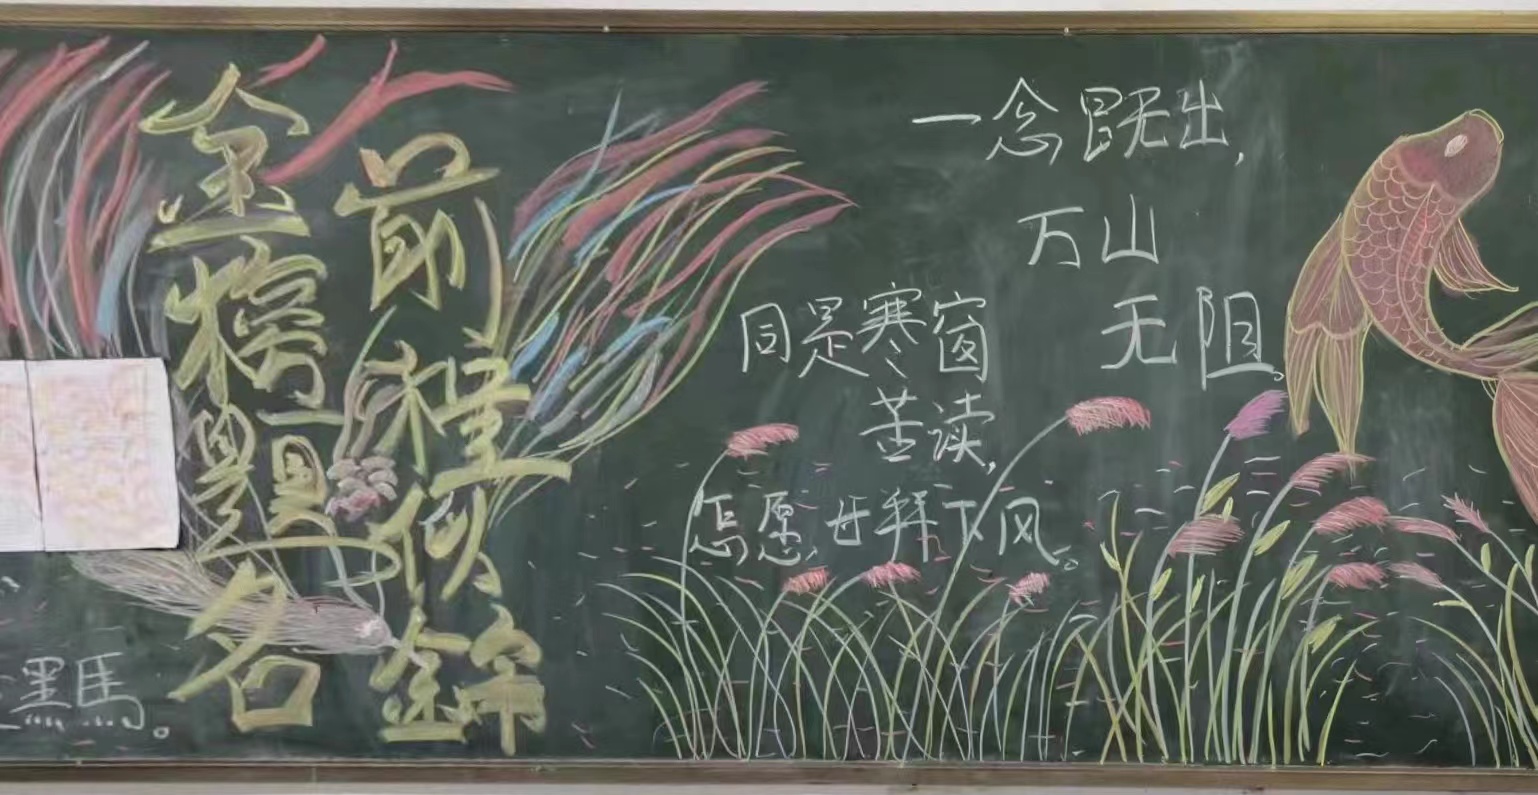 前程似锦
金榜题名
一念既出，
万山
无阻。
同是寒窗
苦读，
怎愿甘拜下风。
黑馬。